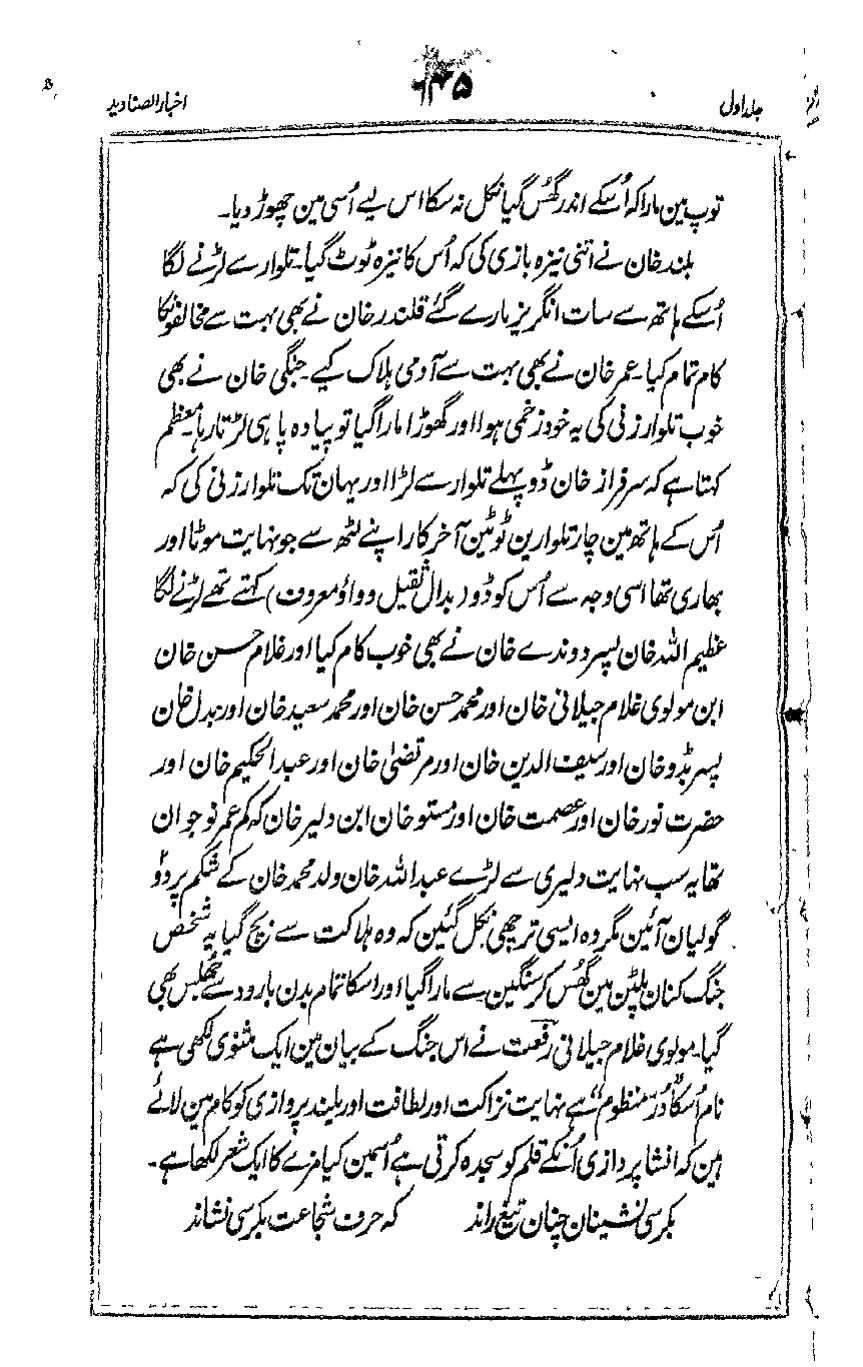 جلد اول
۶۴۵
اخبار الصنادید
توپ مین مارا کہ اُسکے اندر گھُس گیا نکل نہ سکا اس لیے اُسی مین چھوڑ دیا۔
بلند خان نے اتنی نیزہ بازی کی کہ اُس کا نیزہ ٹوٹ گیا۔ تلوار سے لڑنے لگا
اُسکے ہاتھ سے سات انگریز مارے گئے قلندر خان نے بھی بہت سے مخالفونکا
کام تمام کیا۔ عمر خان نے بھی بہت سے آدمی ہلاک کیے۔ جنگی خان نے بھی
خوب تلوار زنی کی یہ خود زخمی ہوا اور گھوڑا مارا گیا تو پیادہ پا ہی لڑتا رہا۔ معظم
کہتا ہے کہ سرفراز خان ڈو پہلے تلوار سے لڑا اور یہان تک تلوار زنی کی کہ
اُس کے ہاتھ مین چار تلوارین ٹوٹین آخر کار اپنے لٹھ سے جو نہایت موٹا اور
بھاری تھا اسی وجہ سے اُس کو ڈو (بدال ثقیل و واؤ معروف) کہتے تھے لڑنے لگا
عظیم اللہ خان پسر دوندے خان نے بھی خوب کام کیا اور غلام حسن خان
ابن مولوی غلام جیلانی خان اور محمد حسن خان اور محمد سعید خان اور بدل خان
پسر بڈو خان اور سیف الدین خان اور مرتضیٰ خان اور عبد الحکیم خان اور
حضرت نور خان اور عصمت خان اور مستو خان ابن دلیر خان کہ کم عمر نوجوان
تھا یہ سب نہایت دلیری سے لڑے عبد اللہ خان ولد محمد خان کے شکم پر دو
گولیان آئین مگر وہ ایسی ترچھی نکل گئین کہ وہ ہلاکت سے بچ گیا یہ شخص
جنگ کنان پلٹن مین گھُس کر سنگین سے مارا گیا اور اسکا تمام بدن بارود سے جھلس بھی
گیا۔ مولوی غلام جیلانی رفعت نے اس جنگ کے بیان مین ایک مثنوی لکھی ہے
نام اُسکا ”دُرّ منظوم“ ہے نہایت نزاکت اور لطافت اور بلند پروازی کو کام مین لائے
ہین کہ انشا پردازی اُنکے قلم کو سجدہ کرتی ہے اُسمین کیا مزے کا ایک شعر لکھا ہے۔
بکرسی نشینان چنان تیغ راند که حرف شجاعت بکرسی نشاند